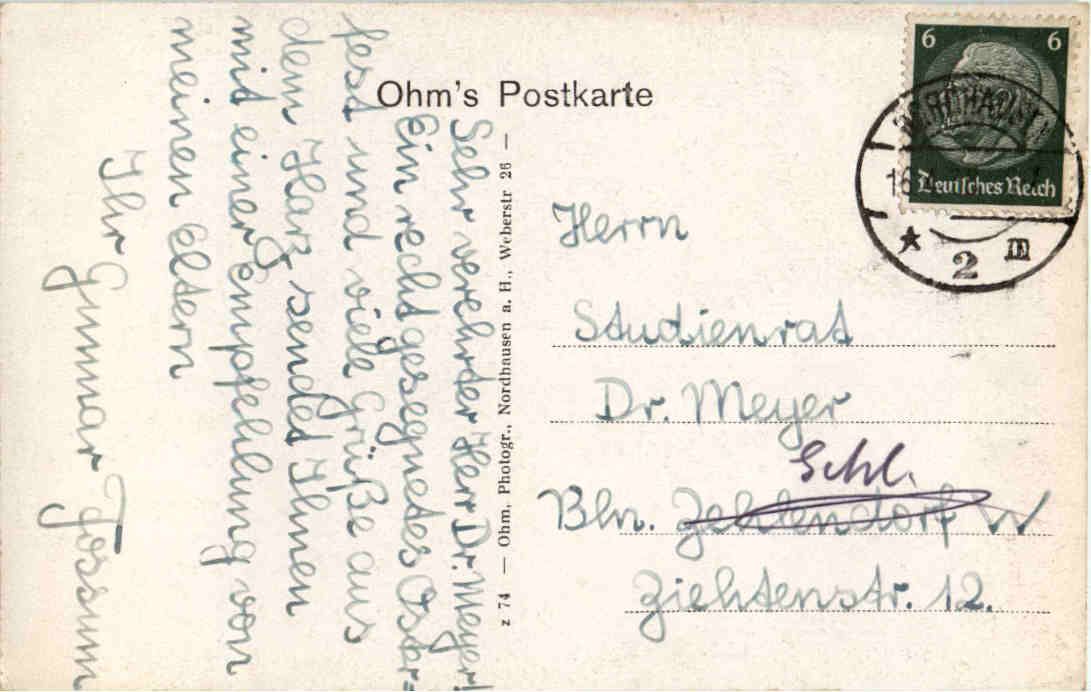 Ohm's Postkarte
Sehr verehrter Herr Dr. Meyer!
Ein recht gesegnetes Oster=
fest und viele Grüße aus
dem Harz sendet Ihnen
mit einer Empfehlung von
meinen Eltern
Ihr Gunnar Fossum
z 74 — Ohm, Photogr., Nordhausen a. H., Weberstr 26 —
6 6
Deutsches Reich
NORDHAUSEN
16
* 2 m
Herrn
Studienrat
Dr. Meyer
Schl.
Bln. Zehlendorf W
Ziehtenstr. 12.